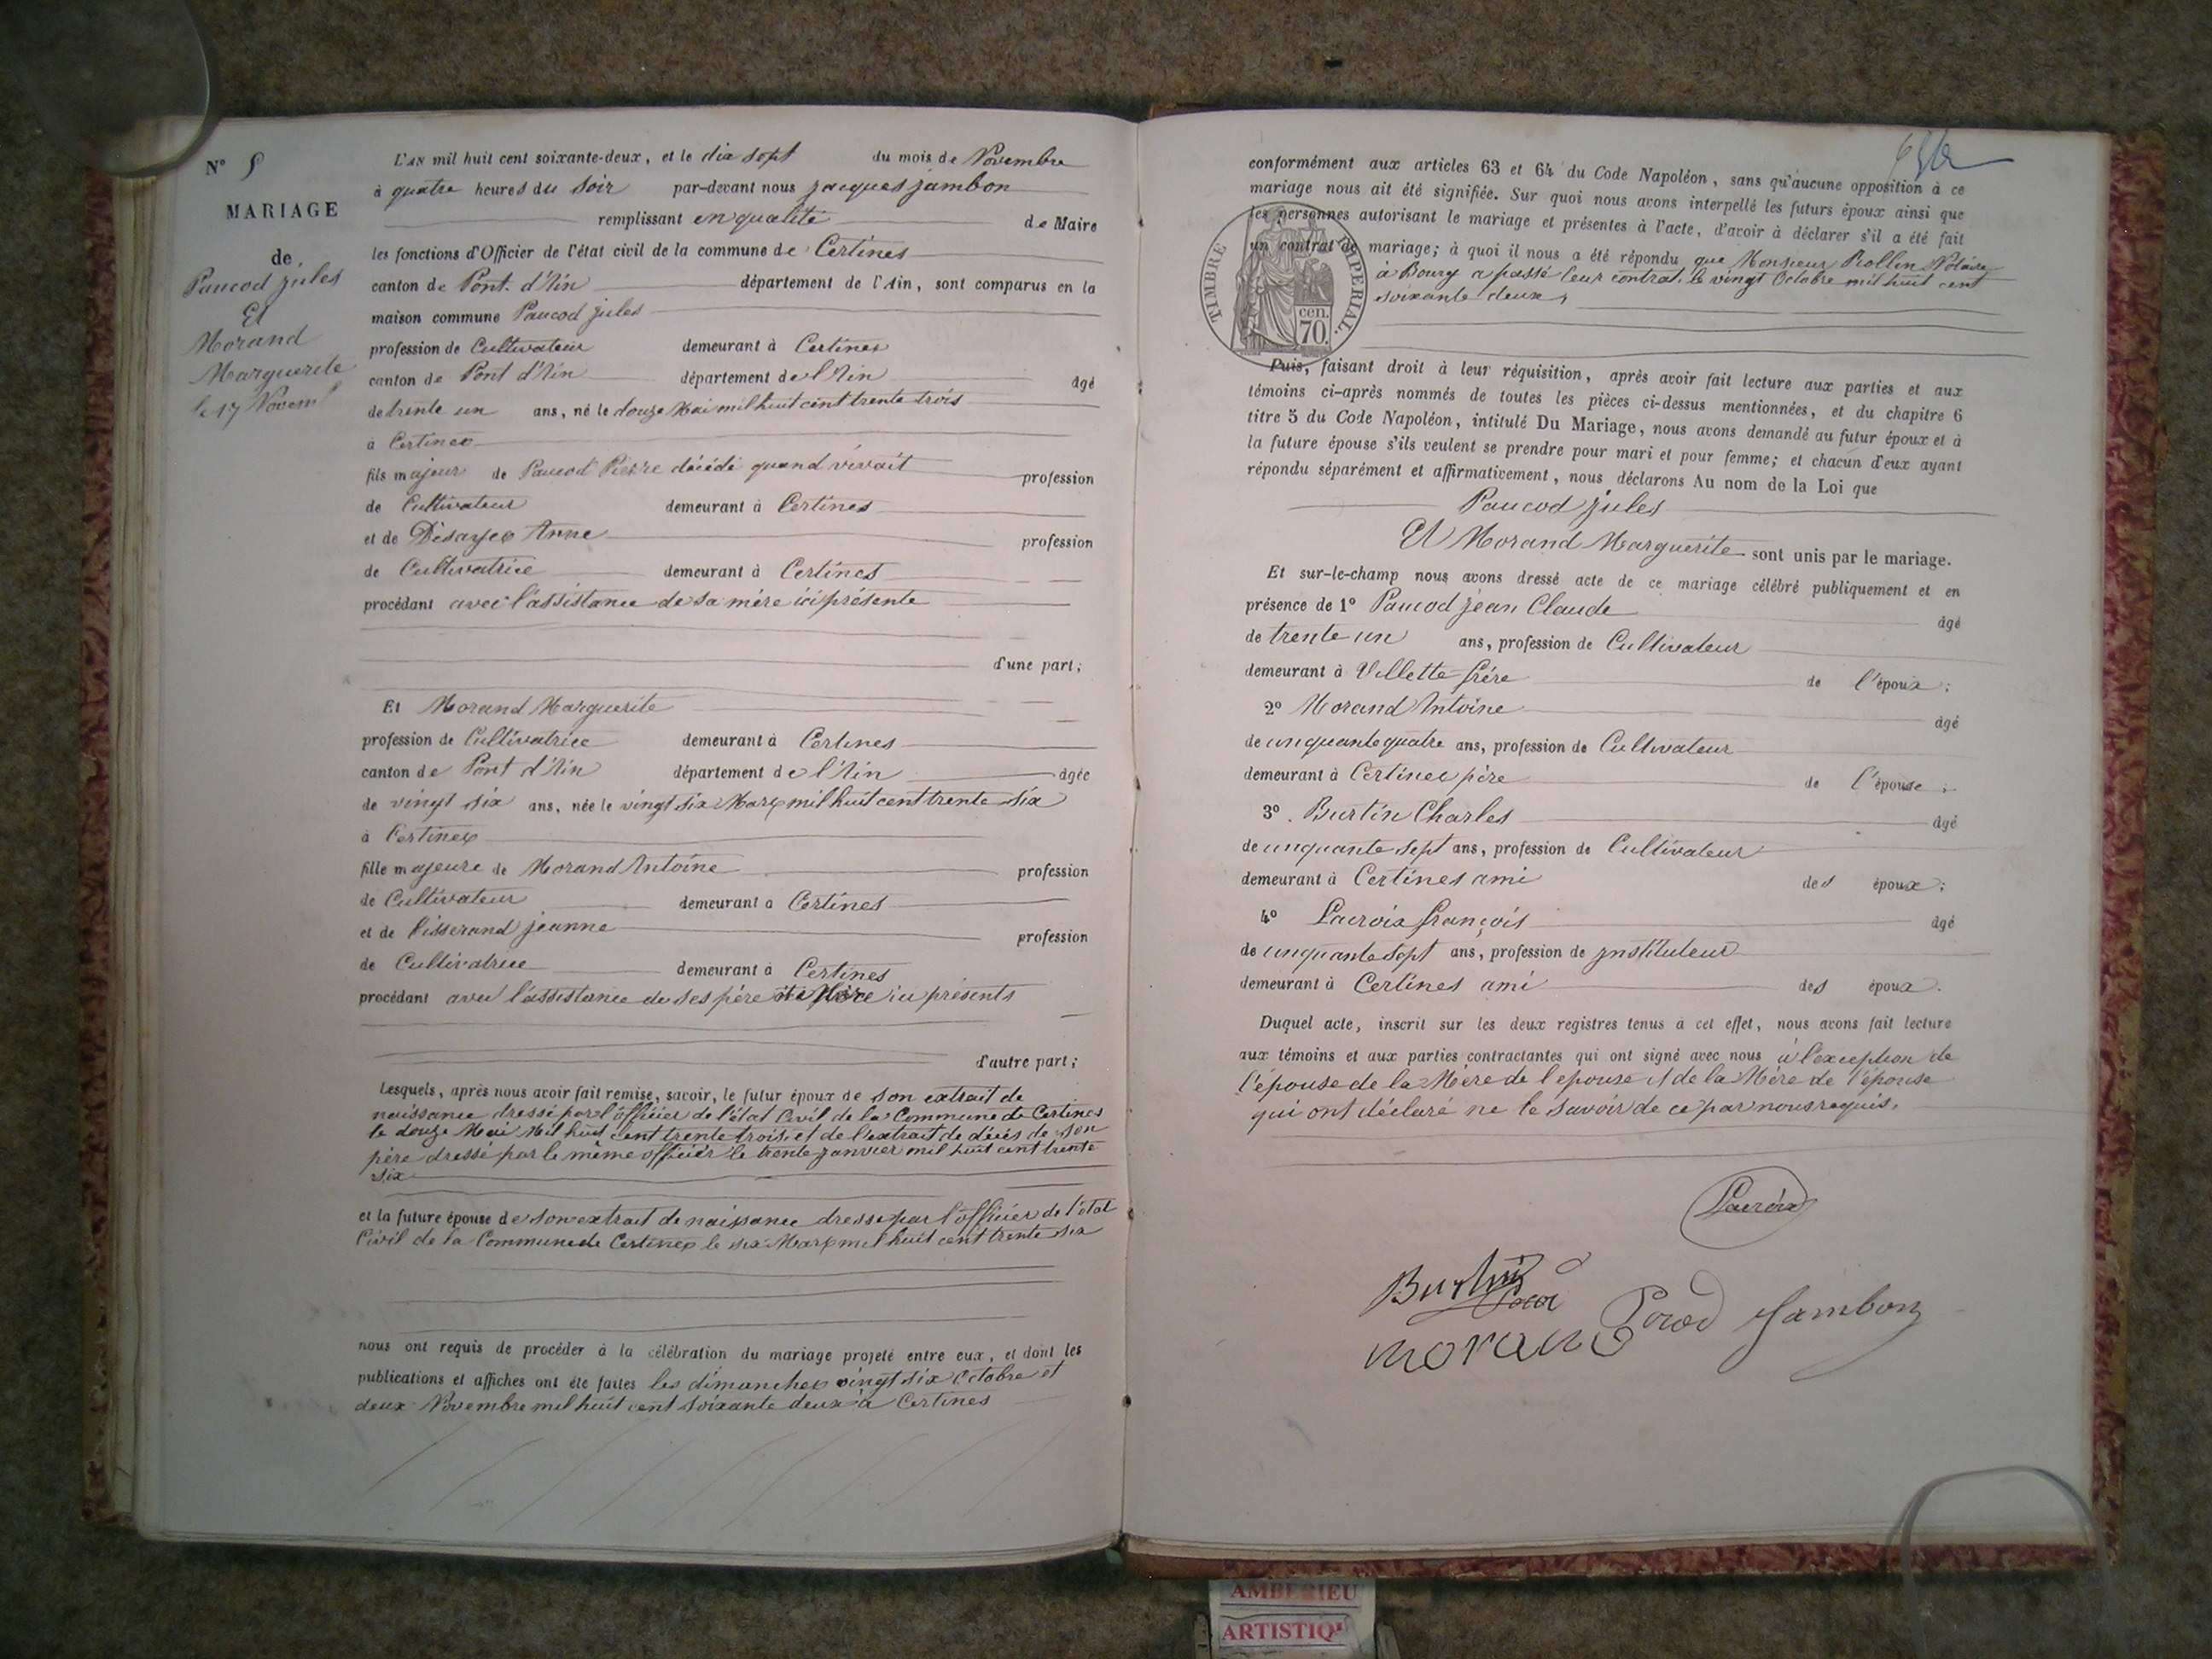 N° 8
MARIAGE
de
Paucod jules
Et
Morand
Marguerite
le 17 Novem
L'AN mil huit cent soixante-deux, et le dix sept du mois de Novembre
à quatre heures du soir par-devant nous jacques jambon
remplissant en qualité de Maire
les fonctions d'Officier de l'état civil de la commune de Certines
canton de Pont d'Ain département de l'Ain, sont comparus en la
maison commune Paucod jules
profession de Cultivateur demeurant à Certines
canton de Pont d'Ain département de l'Ain âgé
de trente un ans, né le douze Mai mil huit cent trente trois
à Certines
fils majeur de Paucod Pierre décédé quand vivait profession
de Cultivateur demeurant à Certines
et de Désayes Anne profession
de Cultivatrice demeurant à Certines
procédant avec l'assistance de sa mère ici présente
d'une part;
Et Morand Marguerite
profession de Cultivatrice demeurant à Certines
canton de Pont d'Ain département de l'Ain âgée
de vingt six ans, née le vingt six Mars mil huit cent trente six
à Certines
fille majeure de Morand Antoine profession
de Cultivateur demeurant à Certines
et de Tisserand jeanne profession
de Cultivatrice demeurant à Certines
procédant avec l'assistance de ses père et Mère ici présents
d'autre part;
Lesquels, après nous avoir fait remise, savoir, le futur époux de son extrait de
naissance dressé par l'officier de l'état Civil de la Commune de Certines
le douze Mai Mil huit cent trente trois, et de l'extrait de décès de son
père dressé par le même officier le trente janvier mil huit cent trente
six
et la future épouse de son extrait de naissance dressé par l'officier de l'état
Civil de la Commune de Certines le six Mars mil huit cent trente six
nous ont requis de procéder à la célébration du mariage projeté entre eux, et dont les
publications et affiches ont été faites les dimanches vingt six Octobre et
deux Novembre mil huit cent soixante deux à Certines
conformément aux articles 63 et 64 du Code Napoléon, sans qu'aucune opposition à ce
mariage nous ait été signifiée. Sur quoi nous avons interpellé les futurs époux ainsi que
les personnes autorisant le mariage et présentes à l'acte, d'avoir à déclarer s'il a été fait
un contrat de mariage; à quoi il nous a été répondu que Monsieur Rollin Notaire
à Bourg a passé leur contrat le vingt Octobre mil huit cent
soixante deux,
TIMBRE IMPERIAL.
cen.
70.
Puis, faisant droit à leur réquisition, après avoir fait lecture aux parties et aux
témoins ci-après nommés de toutes les pièces ci-dessus mentionnées, et du chapitre 6
titre 5 du Code Napoléon, intitulé Du Mariage, nous avons demandé au futur époux et à
la future épouse s'ils veulent se prendre pour mari et pour femme; et chacun d'eux ayant
répondu séparément et affirmativement, nous déclarons Au nom de la Loi que
Paucod jules
Et Morand Marguerite sont unis par le mariage.
Et sur-le-champ nous avons dressé acte de ce mariage célébré publiquement et en
présence de 1° Paucod jean Claude âgé
de trente un ans, profession de Cultivateur
demeurant à Villette frère de l'époux;
2° Morand Antoine âgé
de cinquante quatre ans, profession de Cultivateur
demeurant à Certines père de l'épouse;
3°. Burtin Charles âgé
de cinquante sept ans, profession de Cultivateur
demeurant à Certines ami des époux;
4° Lacroix françois âgé
de cinquante sept ans, profession de jnstituteur
demeurant à Certines ami des époux.
Duquel acte, inscrit sur les deux registres tenus à cet effet, nous avons fait lecture
aux témoins et aux parties contractantes qui ont signé avec nous à l'exception de
l'épouse de la Mère de l'epouse et de la Mère de l'épouse
qui ont déclaré ne le savoir de ce par nous requis.
Lacroix
Burtin
Jambon
morand
AMBERIEU
ARTISTIQ